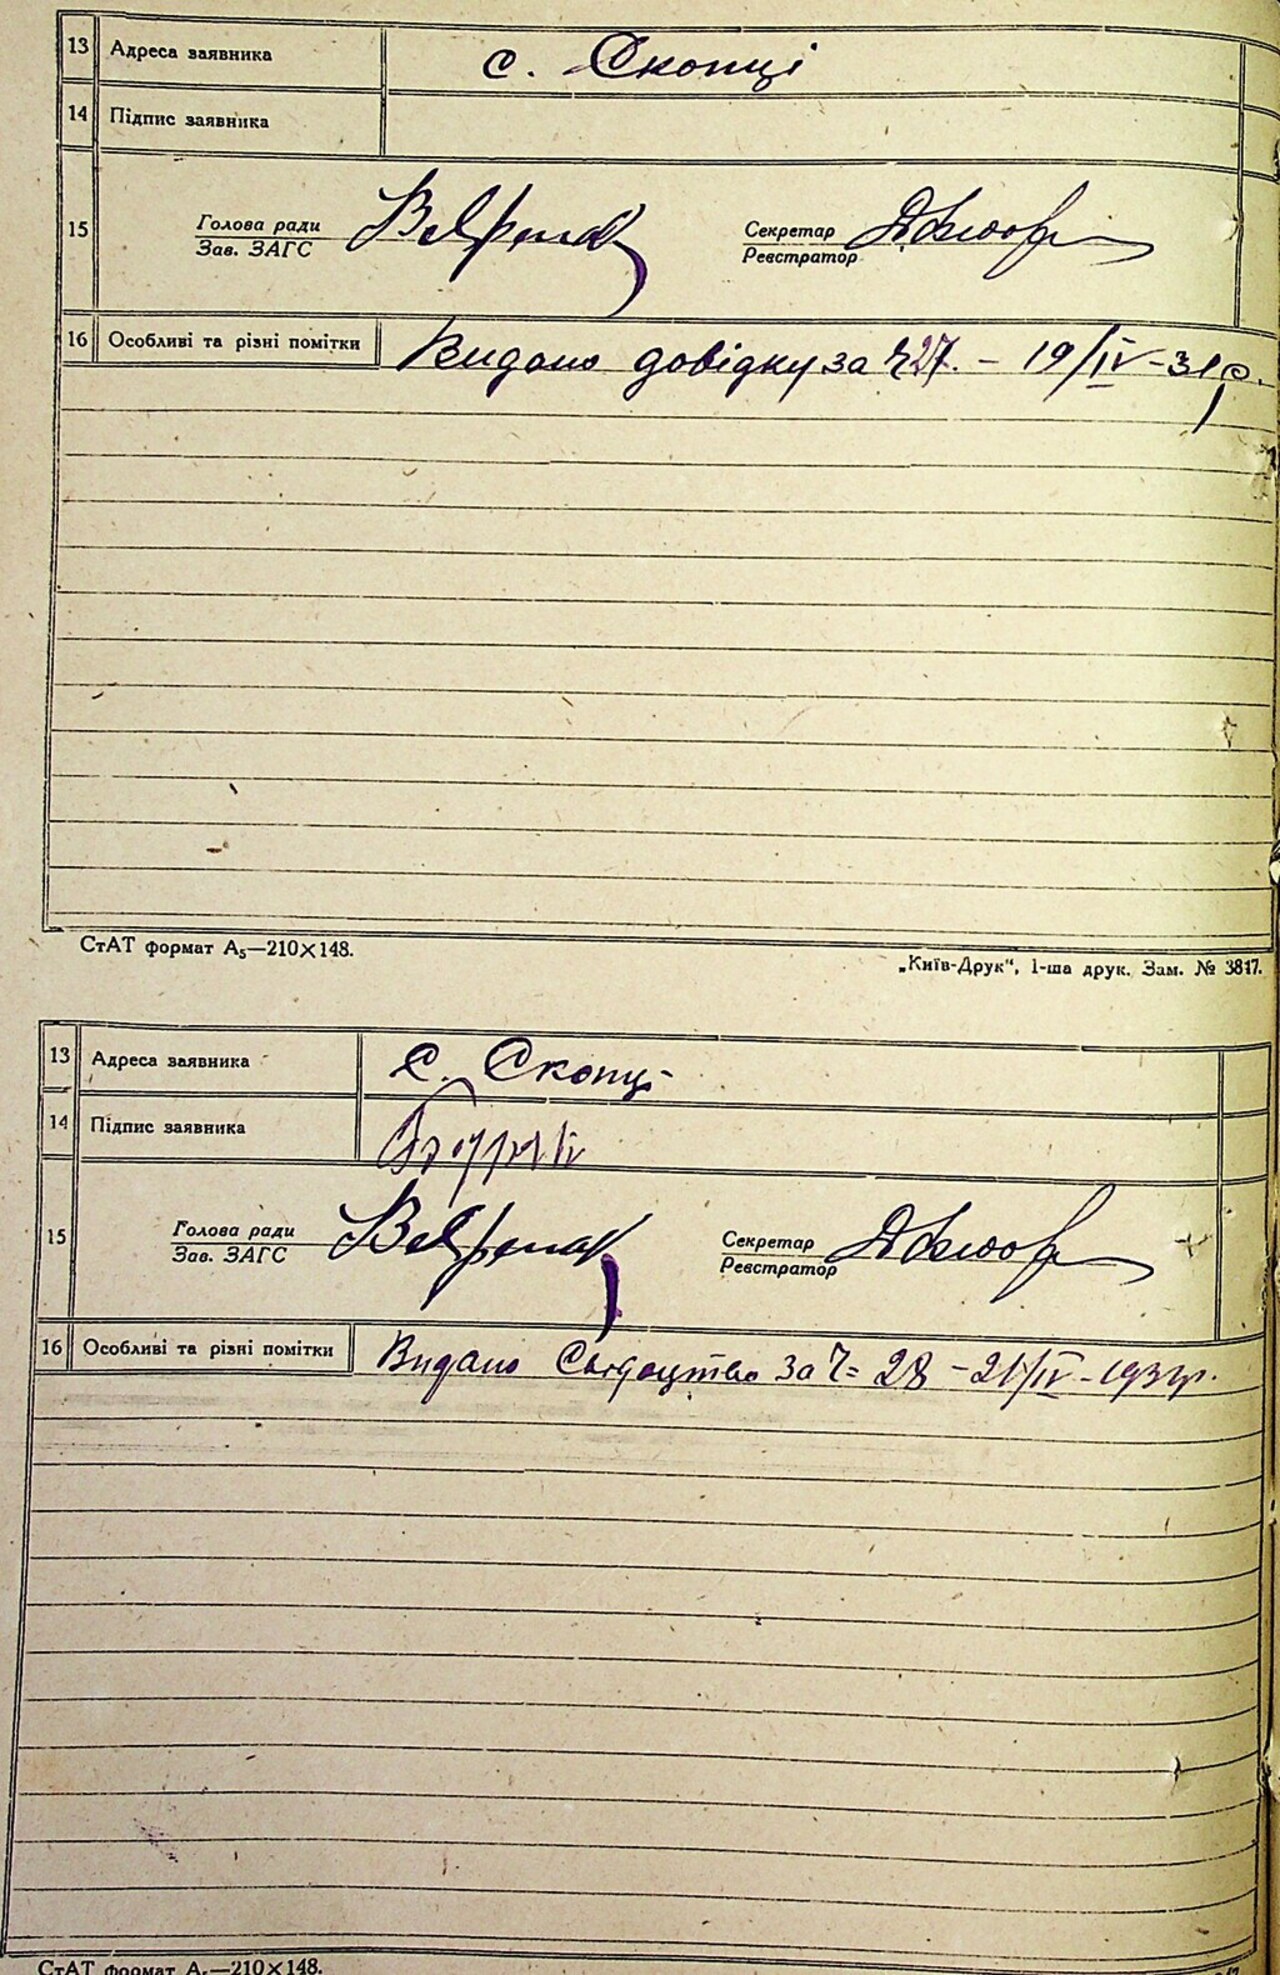 13 Адреса заявника с. Скопці
14 Підпис заявника
15 Голова ради Секретар
Зав. ЗАГС Реєстратор
16 Особливі та різні помітки Видано довідку за Ч 27. – 19/IV – 31 р.
СтАТ формат А5—210×148.
„Київ-Друк“, 1-ша друк. Зам. № 3817.
13 Адреса заявника с. Скопці
14 Підпис заявника
15 Голова ради Секретар
Зав. ЗАГС Реєстратор
16 Особливі та різні помітки Видано Свідоцтво за Ч= 28 – 21/IV – 1931р.
СтАТ формат А5—210×148.